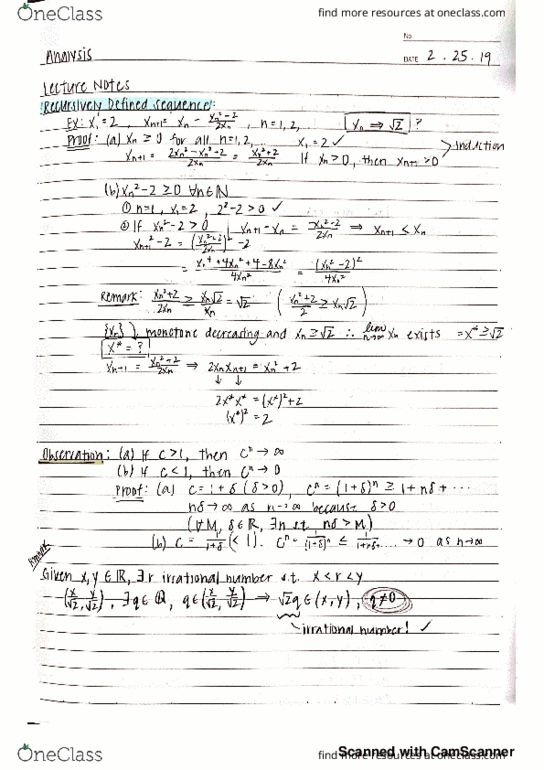 OneClass
find more resources at oneclass.com
No.
DATE 2 . 25 . 19
Analysis
Lecture Notes
Recursively Defined sequence:
Ex: x₁ = 2, xₙ₊₁ = xₙ - (xₙ²-2)/(2xₙ), n=1,2, xₙ ⇒ √2 ?
Proof: (a) xₙ ≥ 0 for all n=1,2, x₁=2 ✓
xₙ₊₁ = (2xₙ²-xₙ²+2)/(2xₙ) = (xₙ²+2)/(2xₙ) If xₙ>0, then xₙ₊₁>0 > induction
(b) xₙ²-2 ≥ 0 ∀n∈ℕ
① n=1, x₁=2, 2²-2 > 0 ✓
② If xₙ²-2 > 0 | xₙ₊₁-xₙ = (xₙ²-2)/(2xₙ) ⇒ xₙ₊₁ < xₙ
xₙ₊₁²-2 = ((xₙ²+2)/(2xₙ))² -2
= (xₙ⁴+4xₙ²+4-8xₙ²)/(4xₙ²) = (xₙ²-2)²/(4xₙ²)
Remark: (xₙ²+2)/(2xₙ) ≥ (xₙ√2)/xₙ = √2 ((xₙ²+2)/2 ≥ xₙ√2)
{xₙ} ↓ monotone decreasing and xₙ ≥ √2 ∴ lim n→∞ xₙ exists = x* ≥ √2
x* = ?
xₙ₊₁ = (xₙ²+2)/(2xₙ) ⇒ 2xₙxₙ₊₁ = xₙ²+2
↓ ↓
2x*x* = (x*)²+2
(x*)² = 2
Observation: (a) If c>1, then cⁿ → ∞
(b) If c<1, then cⁿ → 0
Proof: (a) c=1+δ (δ>0), cⁿ = (1+δ)ⁿ ≥ 1+nδ+...
nδ→∞ as n→∞ because δ>0
(∀M, δ∈ℝ, ∃n s.t. nδ > M)
(b) c = 1/(1+δ) (<1). cⁿ = 1/(1+δ)ⁿ ≤ 1/(1+nδ+...) → 0 as n→∞
Remark
Given x,y ∈ ℝ, ∃ r irrational number s.t. x < r < y
(x/√2, y/√2), ∃q∈ℚ, q∈(x/√2, y/√2) ⇒ √2q ∈ (x,y), q≠0
irrational number! ✓
OneClass
find more resources at oneclass.com
Scanned with CamScanner